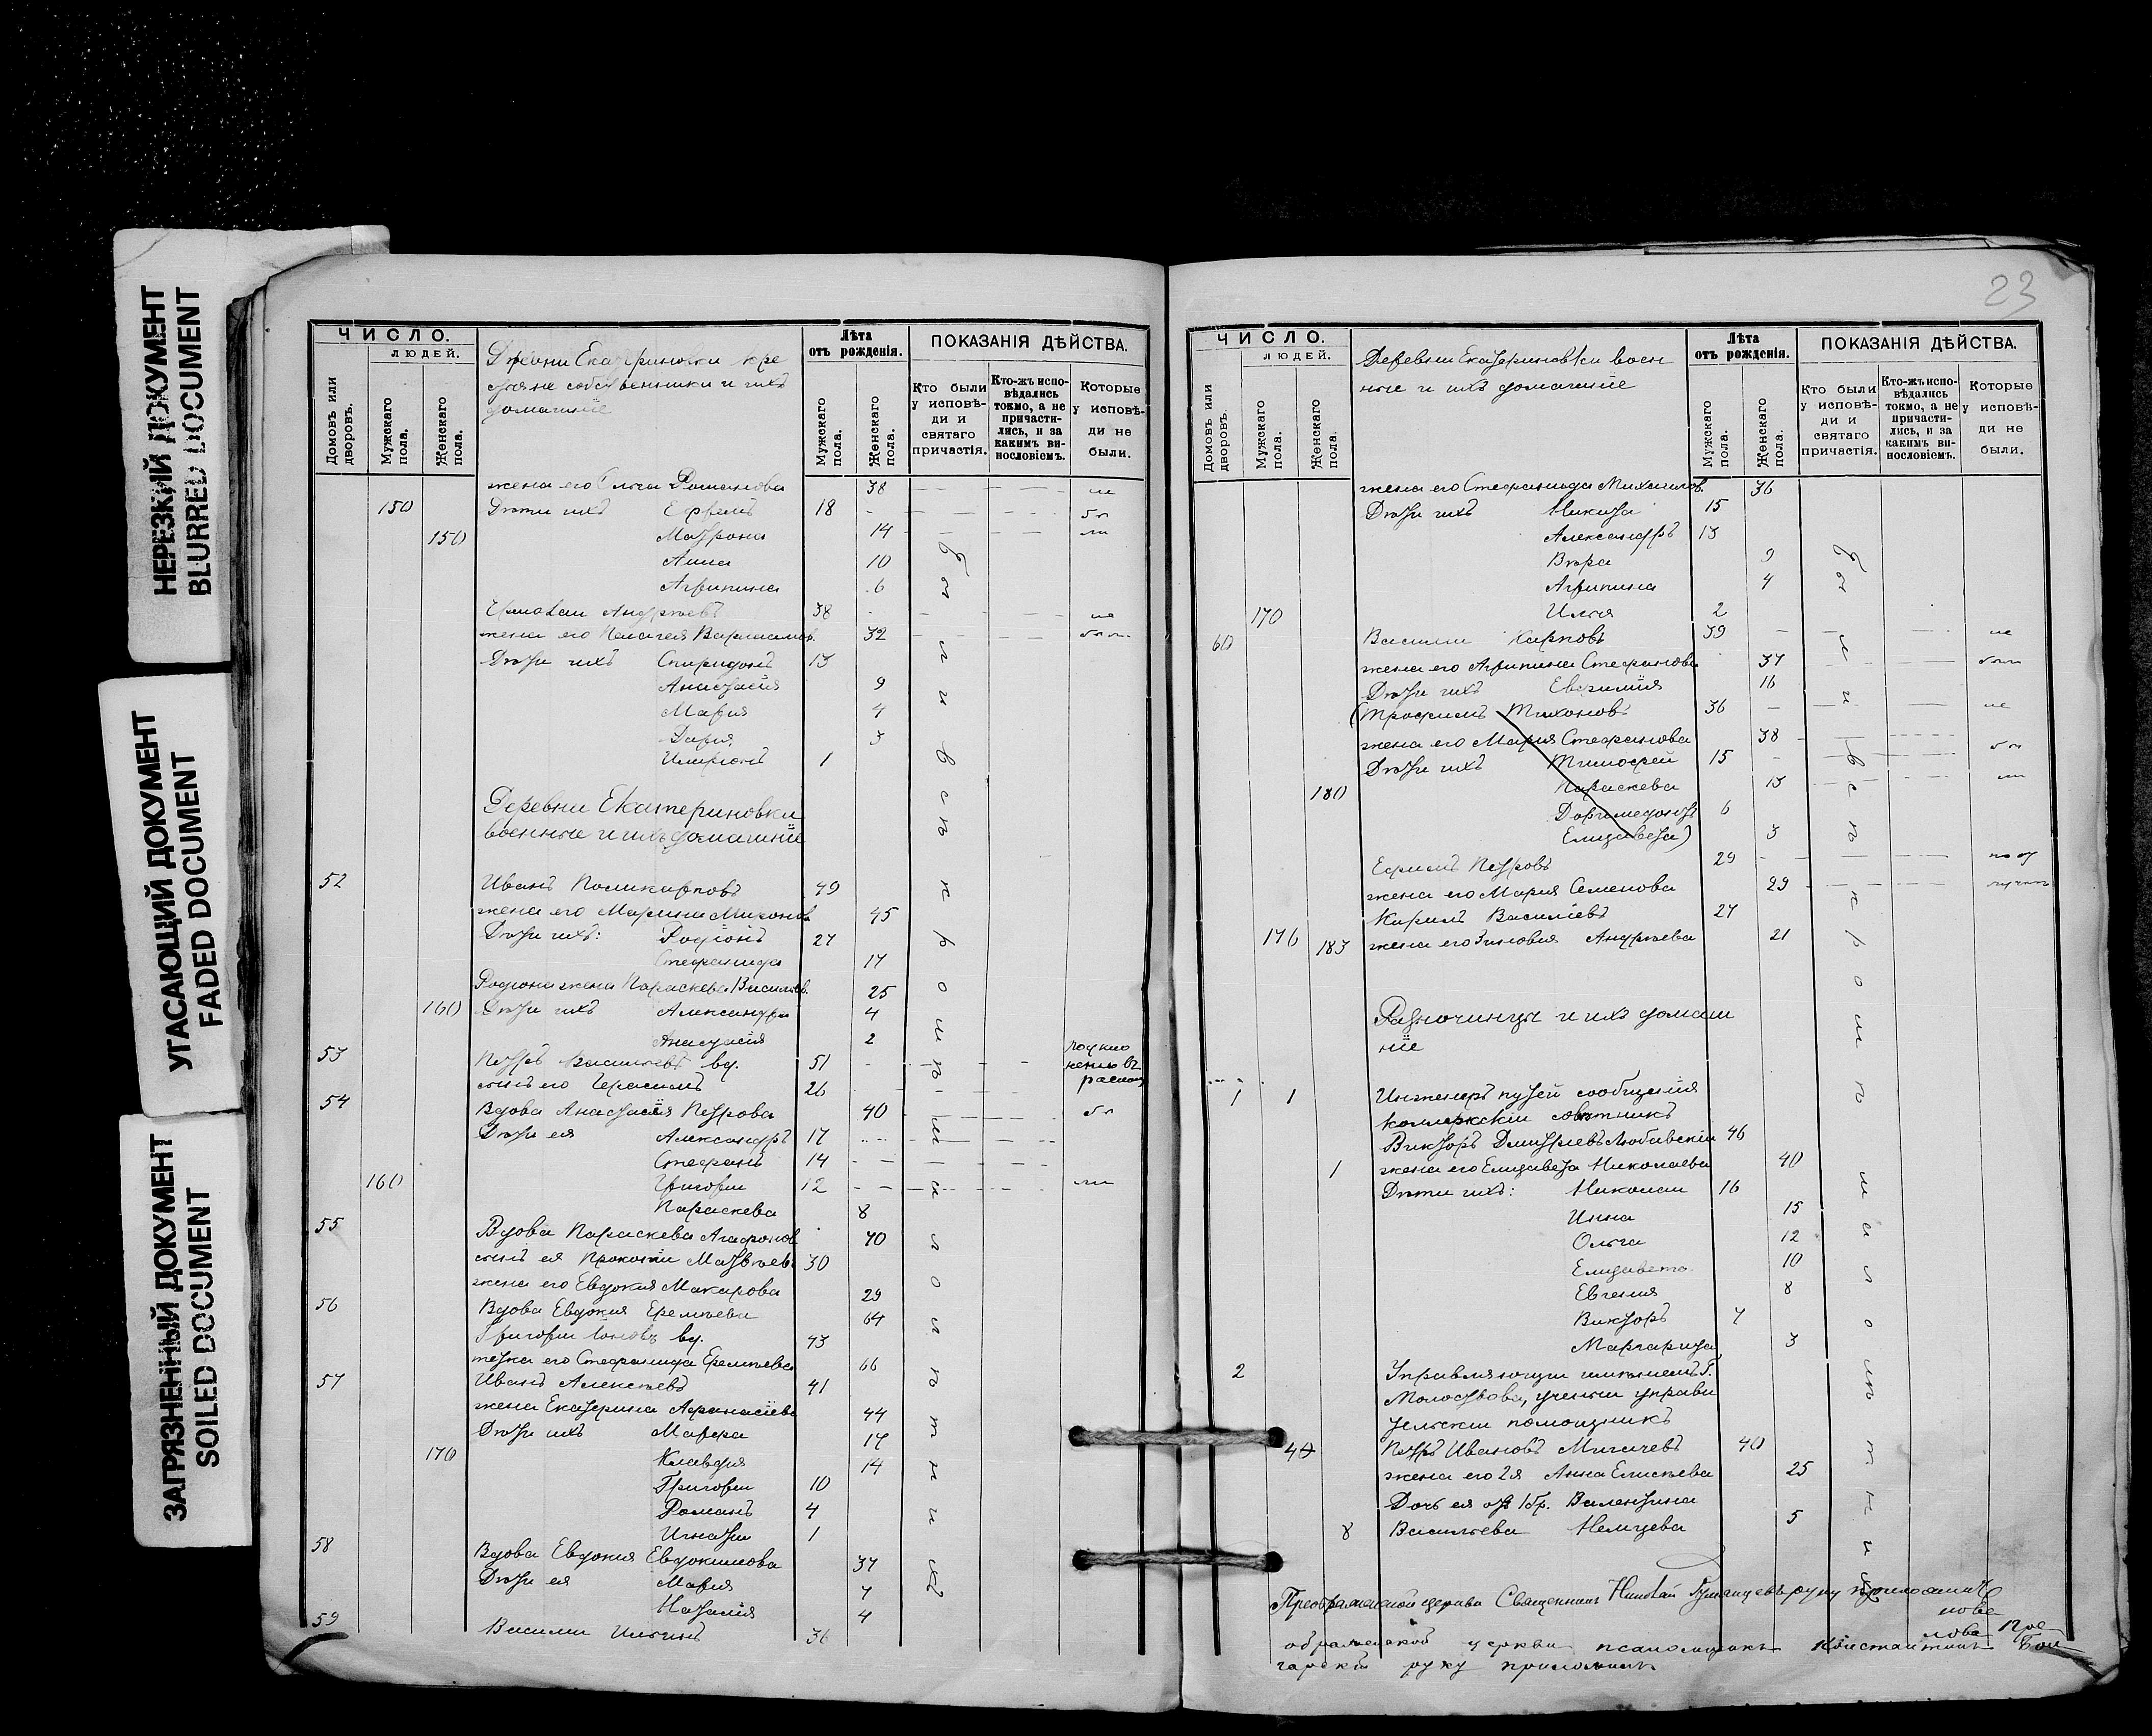 НЕРЕЗКИЙ ДОКУМЕНТ
BLURRED DOCUMENT
УГАСАЮЩИЙ ДОКУМЕНТ
FADED DOCUMENT
ЗАГРЯЗНЕННЫЙ ДОКУМЕНТ
SOILED DOCUMENT
ЧИСЛО.
ЛЮДЕЙ.
Домовъ или дворовъ.
Мужскаго пола.
Женскаго пола.
Деревни Екатериновки кре
стьяне собственники и ихъ
домашніе
Лѣта
отъ рожденія.
Мужскаго пола.
Женскаго пола.
ПОКАЗАНІЯ ДѢЙСТВА.
Кто были у исповѣ-ди и святаго причастія.
Кто-жъ испо-вѣдались токмо, а не причасти-лись, и за какимъ ви-нословіемъ.
Которые у исповѣ-ди не были.
жена его Ольга Романова 38 не
150 Дѣти ихъ Ефремъ 18 бы
150 Матрона 14 ли
Анна 10
Агрипина 6
Андреевъ 38 не
жена его Пелагея Варламов. 32 были
Дѣти ихъ Спиридонъ 13
Анастасія 9
Марія 4
Дарія 3
1
Деревни Екатериновки
военные и ихъ домашніе
52 Иванъ Поликарповъ 49
жена его Марина Миронова 45
Дѣти ихъ: Родіонъ 27
Стефанида 17
Родіона жена Параскева Васильев. 25
160 Дѣти ихъ Александра 4
Анастасія 2
53 Петръ Васильевъ вд. 51
сынъ его Герасимъ 26
54 Вдова Анастасія Петрова 40 бы
Дѣти ея Александръ 17
Стефанъ 14
160 Григорій 12 ли
Параскева 8
55 Вдова Параскева Агафонов. 70
сынъ ея Прокопій Матвѣевъ 30
жена его Евдокия Макарова 29
56 Вдова Евдокия Еремѣева 64
Григорій вд. 43
тетка его Стефанида Еремѣева 66
57 Иванъ Алексѣевъ 41
жена Екатерина Афанасіева 44
Дѣти ихъ Марфа 17
170 Клавдія 14
Григорій 10
Романъ 4
Игнатій 1
58 Вдова Евдокия Евдокимова 37
Дѣти ея Марія 7
Наталія 4
59 Василій Ильинъ 36
23
ЧИСЛО.
ЛЮДЕЙ.
Домовъ или дворовъ.
Мужскаго пола.
Женскаго пола.
Деревни Екатериновки воен
ные и ихъ домашніе
Лѣта
отъ рожденія.
Мужскаго пола.
Женскаго пола.
ПОКАЗАНІЯ ДѢЙСТВА.
Кто были у исповѣ-ди и святаго причастія.
Кто-жъ испо-вѣдались токмо, а не причасти-лись, и за какимъ ви-нословіемъ.
Которые у исповѣ-ди не были.
жена его Стефанида Михаилов. 36
Дѣти ихъ Никита 15
Александръ 13
Вѣра 9
Агрипина 4
170 Илья 2
60 Василий Карповъ 39 не
жена его Агрипина Стефанова 37 были
Дѣти ихъ Евфимія 16
(Трофимъ Тихоновъ 36 не
жена его Мария Стефанова 38
Дѣти ихъ Тимофей 15 бы
180 Параскева 13 ли
Доримедонтъ 6
Елизавета) 3
Ефимъ Петровъ 29
жена его Мария Семенова 29
Кирилъ Василіевъ 27
176 183 жена его Зиновия Андрѣева 21
Разночинцы и ихъ домаш
ніе
1 1 Инженеръ путей сообщенія
коллежскій совѣтникъ
Викторъ Дмитріевъ Любавскій 46
1 жена его Елизавета Николаева 40
Дѣти ихъ: Николай 16
Инна 15
Ольга 12
Елизавета 10
Евгения 8
Викторъ 7
Маргарита 3
2 Управляющій имѣніемъ Г.
Молоствова, ученый управи
тельскій помощникъ
4 Петръ Ивановъ 40
жена его 2я Анна Елисѣева 25
Дочь ея отъ 1 бр. Валентина
8 Васильева Немцева 5
Преображенской церкви Священникъ Николай руку приложилъ
ображенской церкви псаломщикъ Константинъ
руку приложилъ